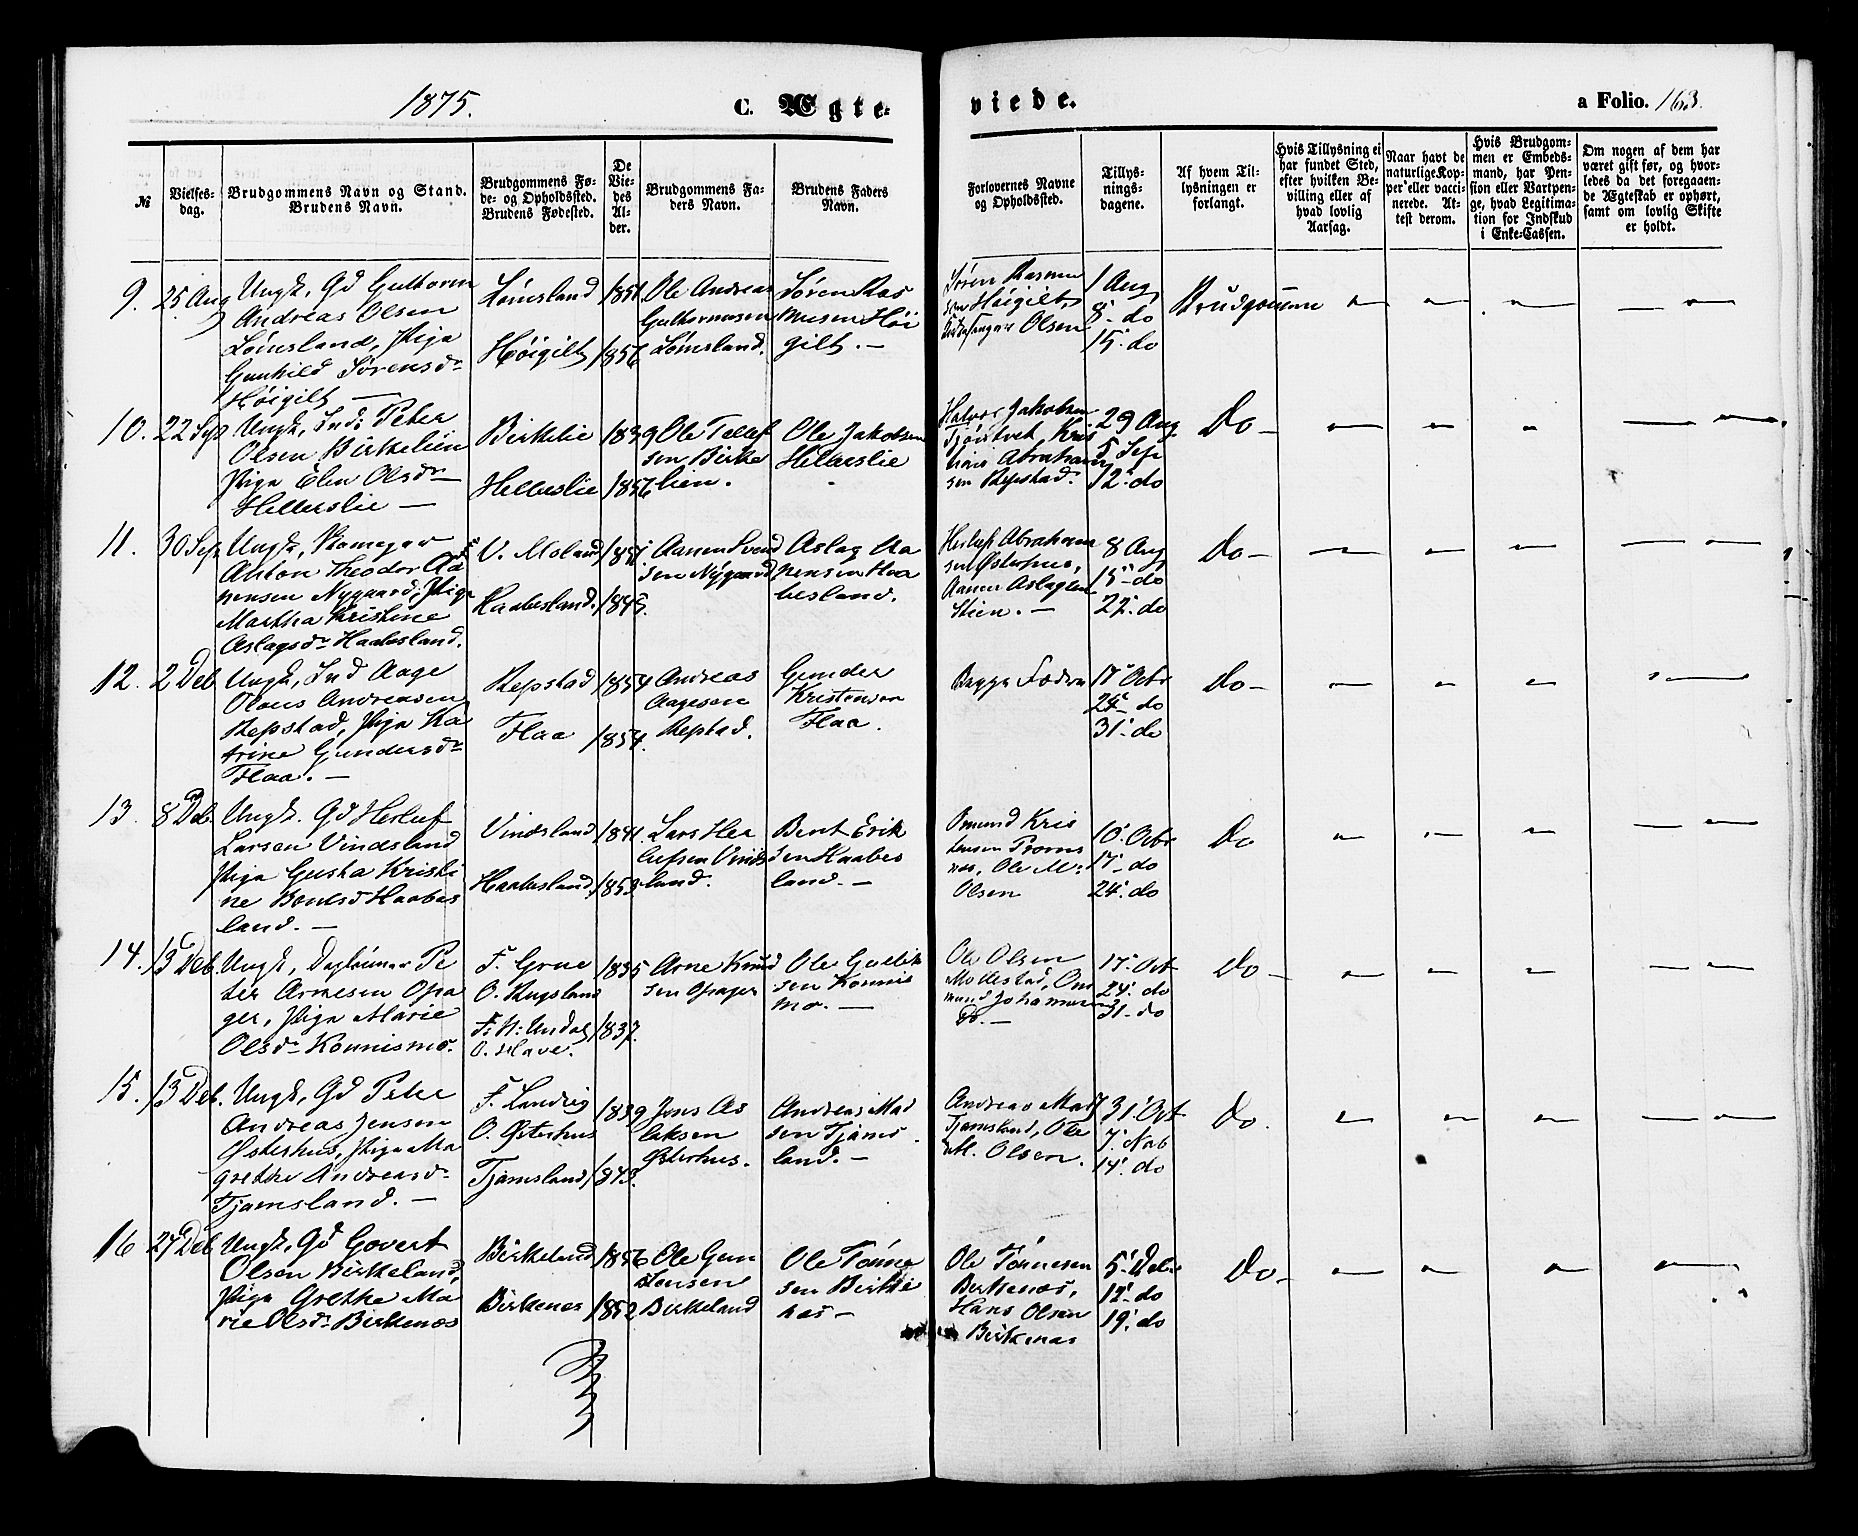 1875. C. Ægte- viede. a Folio. 163.
№
Vielses-
dag.
Brudgommens Navn og Stand.
Brudens Navn.
Brudgommens Fø-
de- og Opholdssted.
Brudens Fødested.
De
Vie-
des
Al-
der.
Brudgommens Fa-
ders Navn.
Brudens Faders
Navn.
Forlovernes Navne
og Opholdssted.
Tillys-
nings-
dagene.
Af hvem Til-
lysningen er
forlangt.
Hvis Tillysning ei
har fundet Sted,
efter hvilken Be-
villing eller af
hvad lovlig
Aarsag.
Naar havt de
naturlige Kop-
per eller vacci-
nerede. At-
test derom.
Hvis Brudgom-
men er Embeds-
mand, har Pen-
sion eller Vartpen-
ge, hvad Legitima-
tion for Indskud
i Enke-Cassen.
Om nogen af dem har
været gift før, og hvor-
ledes da det foregaaen-
de Ægteskab er ophørt,
samt om lovlig Skifte
er holdt.
9. 25 Aug
Ungk, Gd Guttorm
Andreas Olsen
Lømsland, Piga
Gunhild Sørensdr
Høigilt —
Lømsland
Høigilt
1851
1856
Ole Andreas
Guttormsen
Lømsland.
Søren Ras
musen Høi
gilt. —
Søren Rasmu
sen Høigilt,
Olsen
1 Aug
8 - do
15. do
Brudgommen
10. 22 Sep
Ungk, Ind: Peter
Olsen Birkelien
Piga Elen Olsdr
Hellerslie —
Birkelie
Hellerslie
1839
1856
Ole Tellef
sen Birke
lien.
Ole Jakobsen
Hellerslie
Halvor Jakobsen
Kris
Abraham
sen Repstad.
29 Aug
5 Sep
12. do
Do —
11. 30 Sep
Ungk,
Anton Theodor Aa
nensen Nygaard, Piga
Martha Kristine
Aslagsdr Haabesland.
V. Moland
Haabesland.
1851
1845.
Aanen Svend
sen Nygaard
Aslag Aa
nensen Haa
besland.
Herlief Abraham
sen Østerhus,
Aanen Aslagsen
Stien. —
8 Aug
15 - do
22. do
Do —
12. 2 Deb
Ungk, Ind Aage
Olaus Andreasen
Repstad, Piga Ka
trine Gundersdr
Flaa. —
Repstad
Flaa
1854
1854.
Andreas
Aagesen
Repstad.
Gunder
Kristensen
Flaa.
Begge Fædre
17 Octr
24 - do
31. do
Do —
13. 8 Deb.
Ungk. Gd Herluf
Larsen Vindsland
Piga Gusta Kristi
ne Bentsd Haabes
land. —
Vindsland
Haabesland
1841.
1853.
Lars Her
lufsen Vinds
land.
Bent Erik
sen Haabes
land. —
Omund Kris
tensen
Ole M:
Olsen
10. Octr
17. do
24. do
Do
14. 13 Deb.
Ungk, Pe
ter Arnesen Opsa
ger, Piga Marie
Olsdr Konnismo.
F. Grue
O. Rugsland
F: N: Undal
O. Have.
1835
1837.
Arne Knud
sen Opsager
Ole Gullik
sen Konnis
mo. —
Ole Olsen
Mollestad, Om
mund Johannesen
Do. —
17. Oct
24. do
31. do
Do —
15. 13 Deb.
Ungk, Gd Peter
Andreas Jensen
Østerhus, Piga Ma
grethe Andreasdr
Tjamsland. —
F. Landvig
O. Østerhus
Tjamsland
1839
1843.
Jens As
laksen
Østerhus.
Andreas Mad
sen Tjams
land. —
Andreas Mads
Tjamsland, Ole
M. Olsen.
31. Oct
7. Nob
14. do
Do.
16. 27 Deb
Ungk. Gd Govert
Olsen Birkeland,
Piga Grethe Ma
rie Olsdr Birkenæs
Birkeland
Birkenes
1856
1852
Ole Gun
stensen
Birkeland
Ole Tønne
sen Birke
næs —
Ole Tønnesen
Birkenæs,
Hans Olsen
Birkenæs
5. Deb.
12. do
19. do
Do —